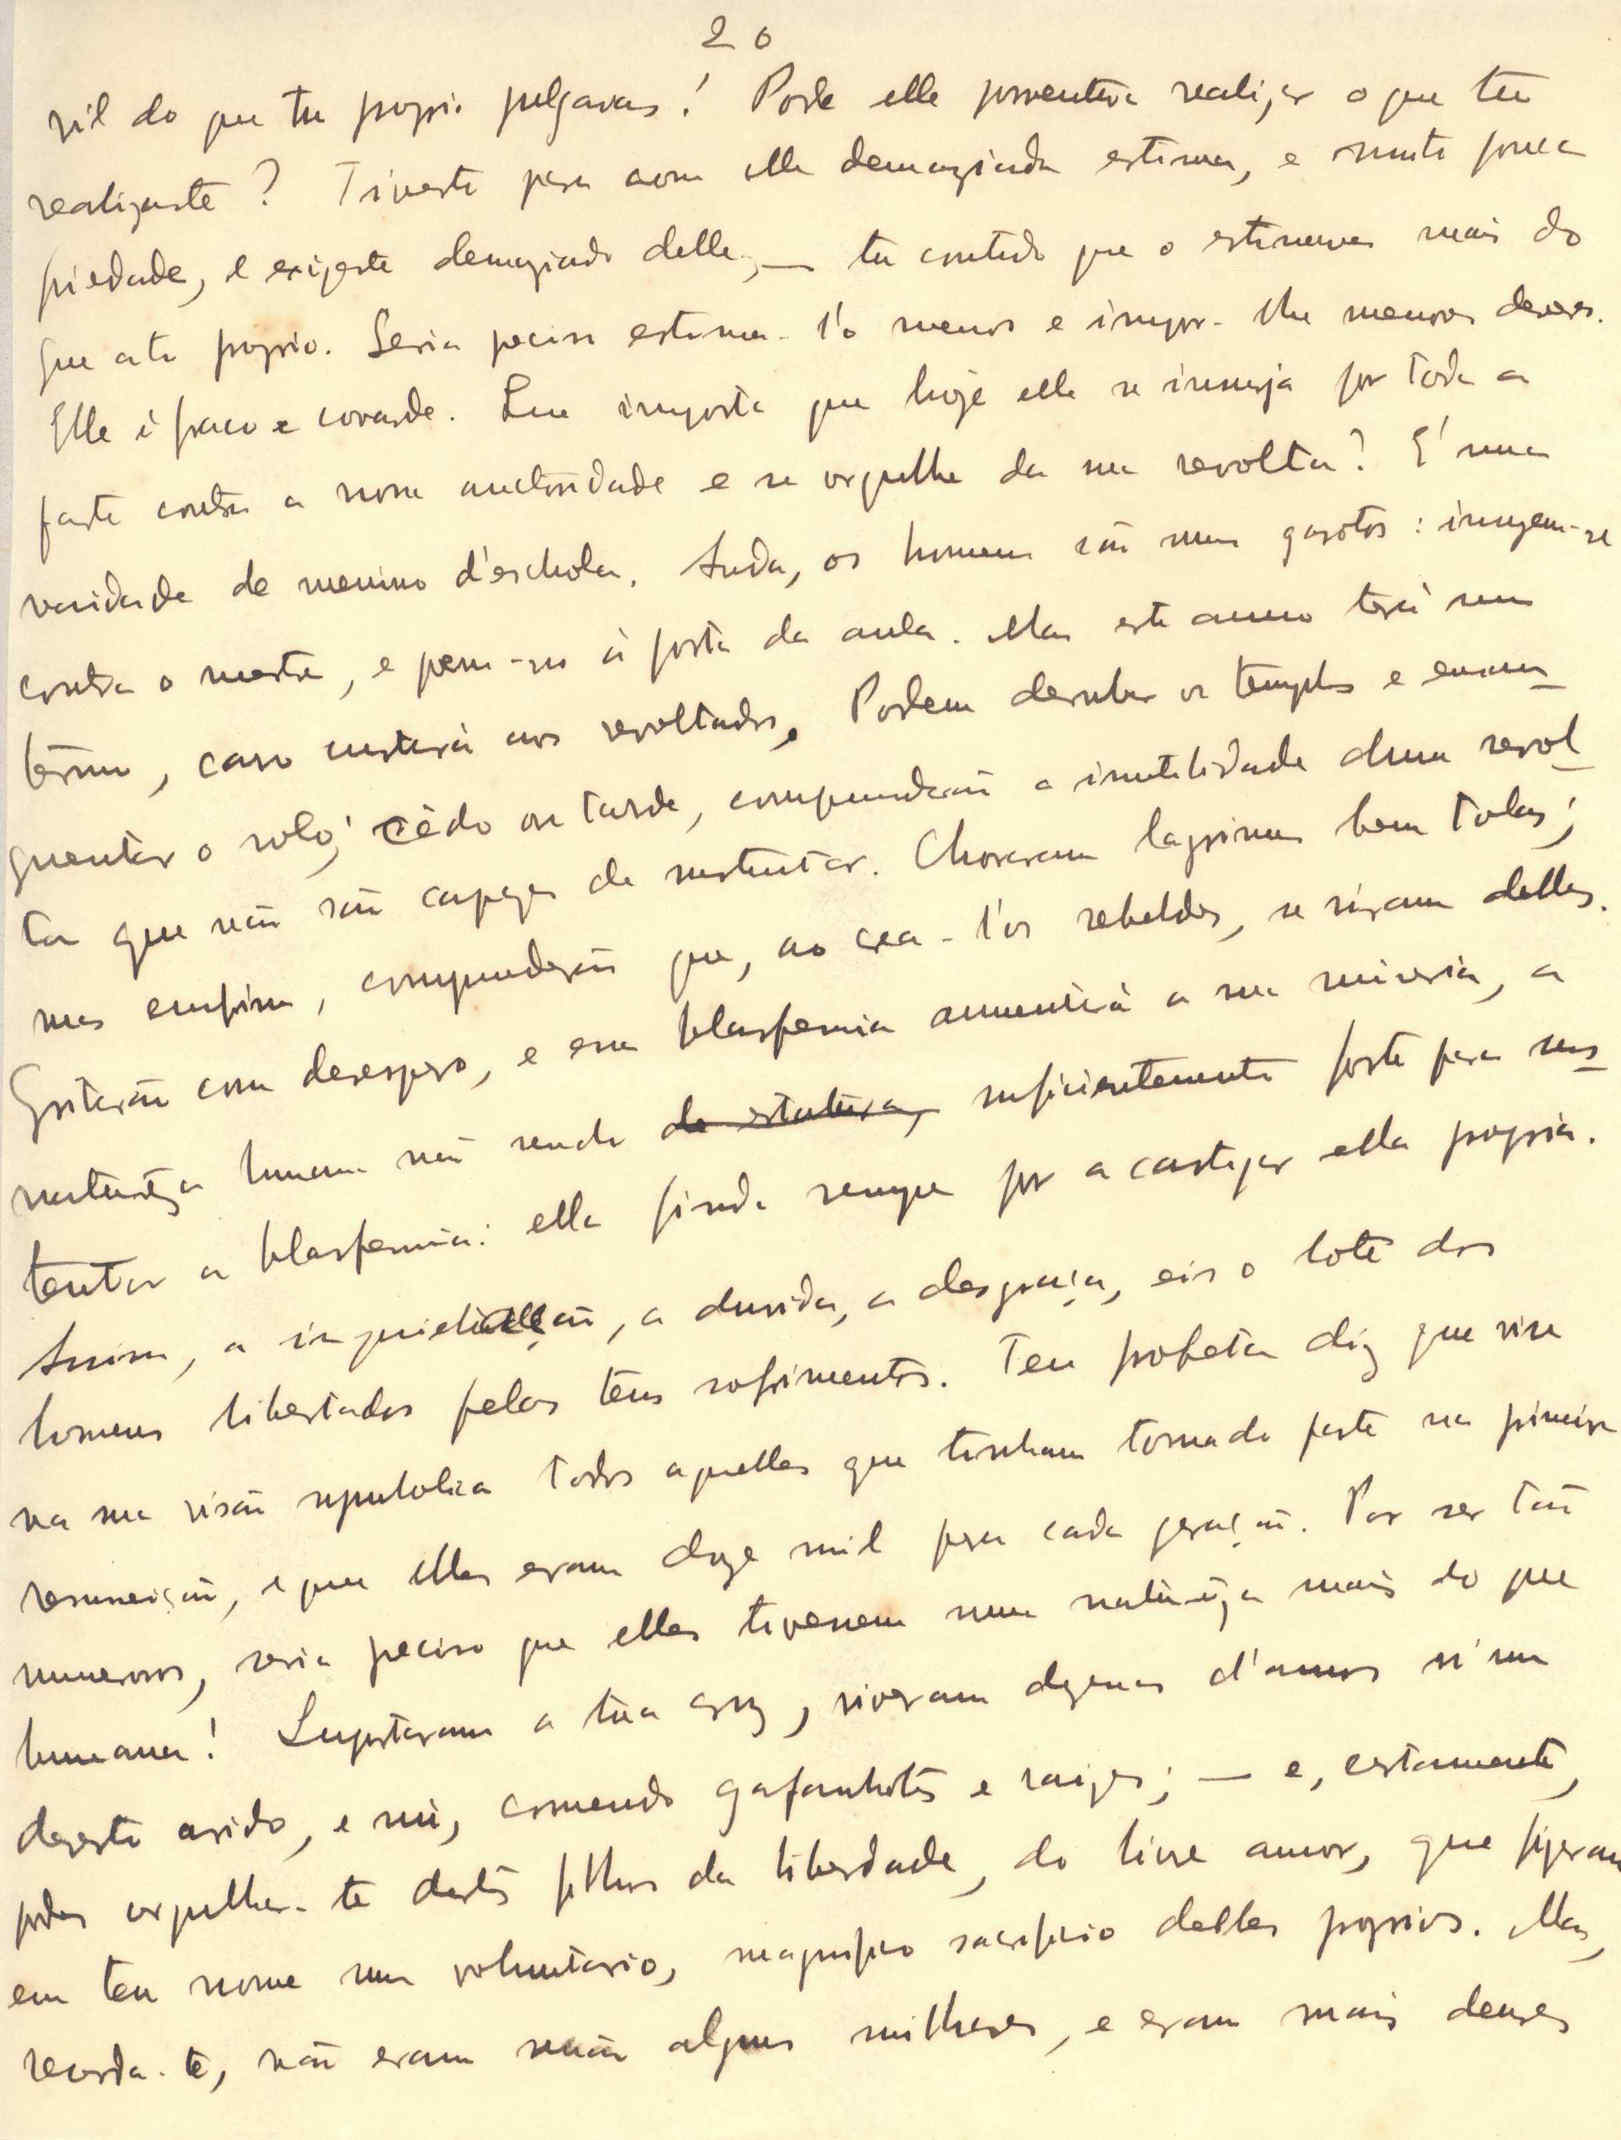 20
vil do que tu proprio julgavas! Pode elle porventura realizar o que tu
realizaste? Tiveste para com elle demaziada estima, e muito pouca
piedade, e exigeste demaziado delle, — tu comtudo que o estimavas mais do
que a ti proprio. Seria preciso estima-l'o menos e impor-lhe menores deveres.
Elle é fraco e covarde. Que importa que hoje elle se insurja por toda a
parte contra a nossa auctoridade e se orgulhe da sua revolta? É uma
vaidade de menino d'eschola. Anda, os homens são uns garotos: insurgem-se
contra o mestre, e poem-no á porta da aula. Mas este anno terá um
termo, caro custará aos revoltados. Podem derrubar os templos e ensan-
guentar o solo; cêdo ou tarde, comprenderão a inutilidade duma revol-
ta que não são capazes de sustentar. Choraram lagrimas bem tolas;
mas emfim, comprenderão que, ao crea-l'os rebeldes, se riram delles.
Gritarão com desespero, e essa blasfemia aumentará a sua miseria, a
naturêza humana não sendo de estatura, suficientemente forte para sus-
tentar a blasfemia: ella finda sempre por a castigar ella propria.
Assim, a inquietação, a duvida, a desgraça, eis o lote dos
homens libertados pelos teus sofrimentos. Teu profeta diz que vira
na sua visão symbolica todos aquelles que tinham tomado parte na primeira
resurreição, e que elles eram doze mil para cada geração. Por ser tão
numerosos, seria preciso que elles tivessem uma naturêza mais do que
humana! Suportaram a tua cruz, viveram dezenas d'annos n'um
deserto arido, e nu, comendo gafanhotos e raizes; — e, certamente,
podes orgulhar-te destes filhos da liberdade, do livre amor, que fizeram
em teu nome um voluntario, magnifico sacrificio delles proprios. Mas,
recorda-te, não eram senão alguns milhares, e eram mais deuzes